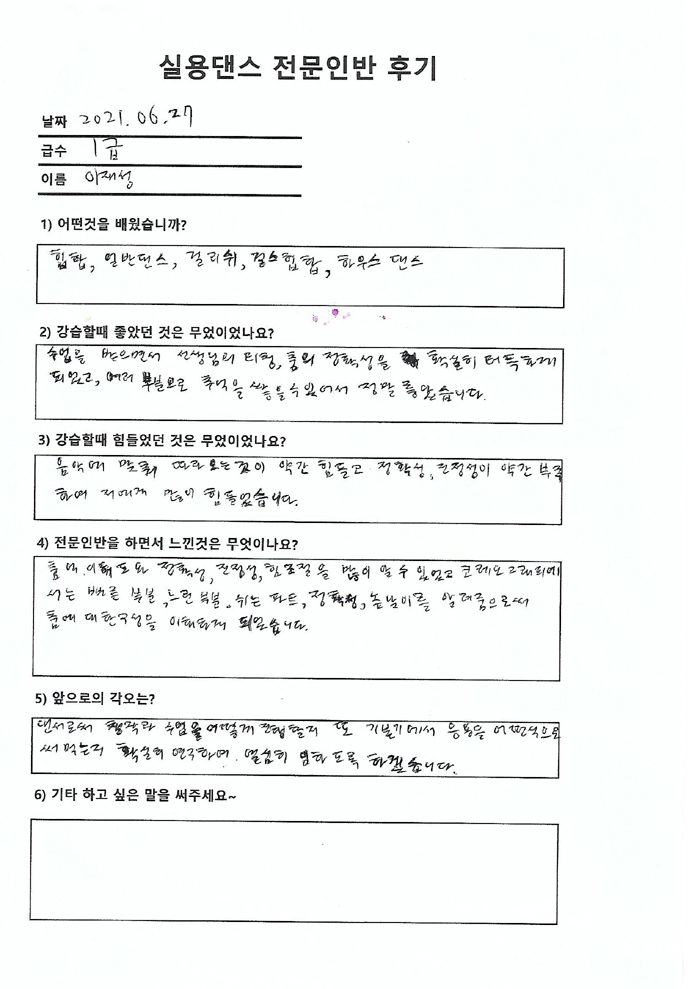 실용댄스 전문인반 후기
날짜 2021.06.27
급수 1급
이름 이재성
1) 어떤것을 배웠습니까?
힙합, 일반댄스, 걸리쉬, 걸스힙합, 하우스 댄스
2) 강습할때 좋았던 것은 무었이었나요?
수업을 받으면서 선생님의 티칭, 춤의 정확성을 확실히 터득하게
되었고, 여러 부분으로 추억을 쌓을수있어서 정말 좋았습니다.
3) 강습할때 힘들었던 것은 무었이었나요?
음악에 맞춰 따라오는것이 약간 힘들고 정확성, 진정성이 약간 부족
하여 저에게 많이 힘들었습니다.
4) 전문인반을 하면서 느낀것은 무엇이나요?
춤의 이해도와 정확성, 진정성, 힘조절을 많이 알 수 있었고 코레오그래피에
서는 빠른 부분, 느린 부분, 쉬는 파트, 정확성, 높낮이를 알려줌으로써
춤에 대한 구성을 이해하게 되었습니다.
5) 앞으로의 각오는?
댄서로써 창작과 수업을 어떻게 진행할지 또 기본기에서 응용을 어떤식으로
써먹는지 확실히 연구하며 열심히 임하도록 하겠습니다.
6) 기타 하고 싶은 말을 써주세요~